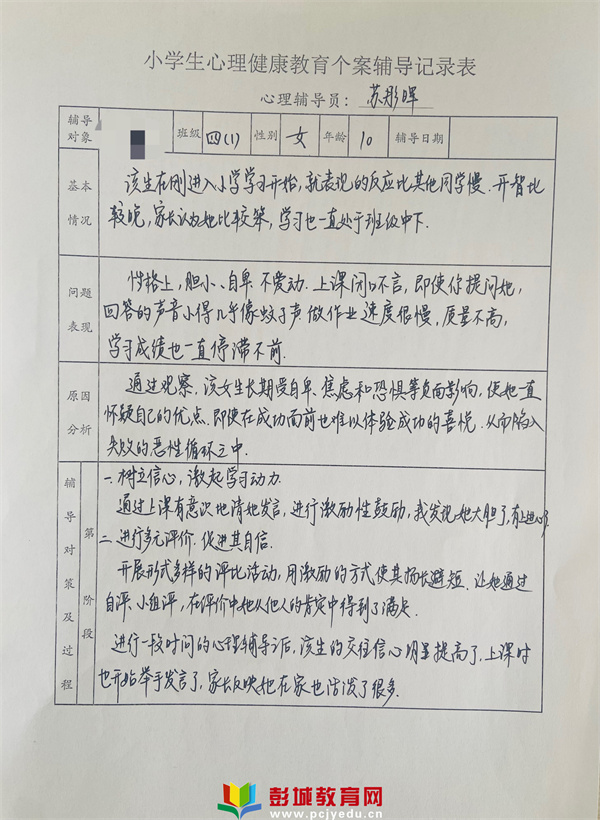 小学生心理健康教育个案辅导记录表
心理辅导员：苏彤晖
辅导对象 班级 四(1) 性别 女 年龄 10 辅导日期
基本情况
该生在刚进入小学学习开始，就表现的反应比其他同学慢．开智比
较晚，家长认为她比较笨，学习也一直处于班级中下．
问题表现
性格上，胆小、自卑、不爱动．上课闭口不言，即使你提问她，
回答的声音小得几乎像蚊子声．做作业速度很慢，质量不高，
学习成绩也一直停滞不前．
原因分析
通过观察．该女生长期受自卑、焦虑和恐惧等负面影响，使她一直
怀疑自己的优点．即使在成功面前也难以体验成功的喜悦．从而陷入
失败的恶性循环之中．
辅导对策及过程
第 阶段
一．树立信心，激起学习动力．
通过上课有意识地请她发言，进行激励性鼓励，我发现她大胆了，有上进心了
二．进行多元评价．促进其自信．
开展形式多样的评比活动，用激励的方式使其扬长避短．让她通过
自评、小组评，在评价中她从他人的肯定中得到了满足．
进行一段时间的心理辅导后，该生的交往信心明显提高了．上课时
也开始举手发言了，家长反映她在家也活泼了很多．
彭城教育网
www.pcjyedu.cn